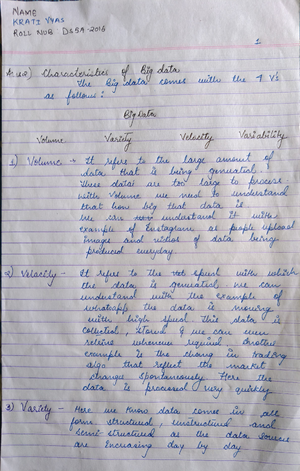 NAME
KRATI VYAS
ROLL NUB D&SA-2016
1
Characteristics of Big data
The Big data comes with the 4 V's
as follows:
Big Data
Volume Variety Velocity Variability
1) Volume → It refers to the large amount of
data that is being generated.
These data are too large to process
with volume we need to understand
that how big that data is.
We can understand it with
example of Instagram as people upload
Images and videos of data being
produced everyday.
2) Velocity - It refers to the speed with which
the data is generated we can
understand with the example of
whatsapp the data is moving
with high speed this data is
collected, stored & we can
receive whenever required Another
example is the change in trading
algo that reflect the market
change spontaneously Here the
data is processed very quickly.
3) Variety - Here we know data comes in all
form structured, unstructured and
semi-structured as the data source
are increasing day by day